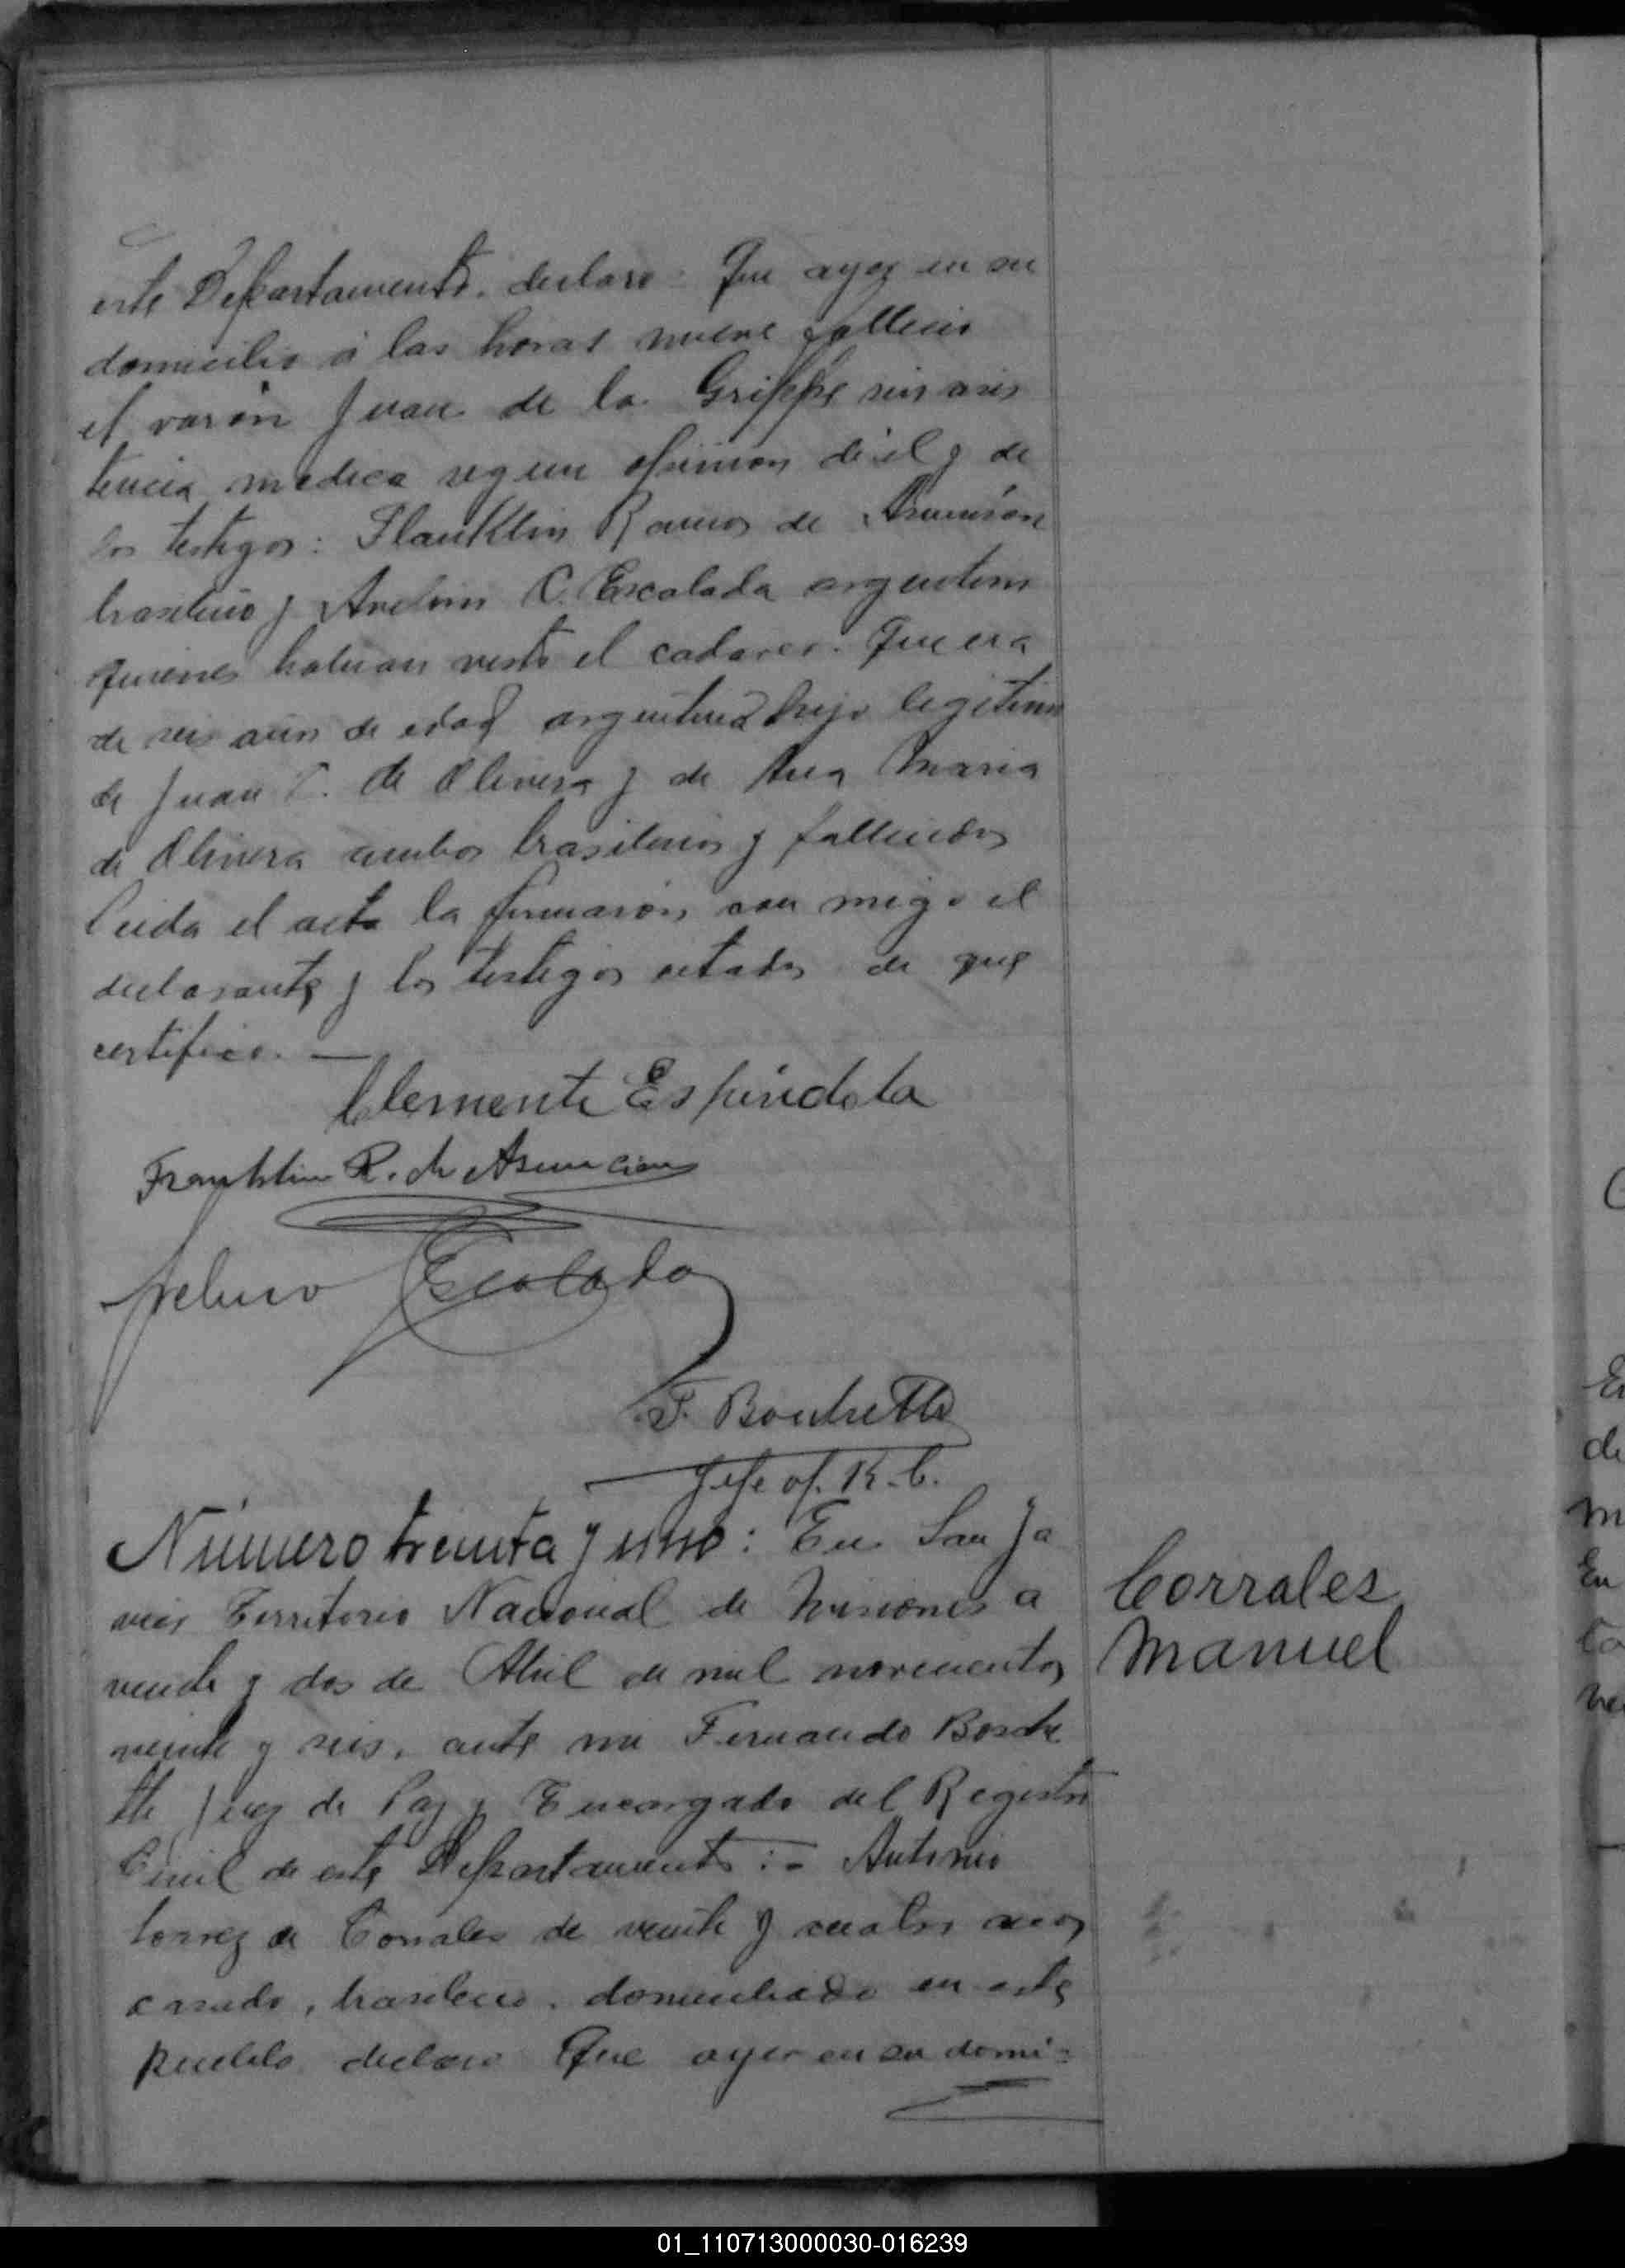 este Departamento. declaro: Que ayer en su
domicilio á las horas nueve fallecio
el varón Juan de la Grippe sin asis
tencia medica segun opinion de él y de
los testigos: Flanklin Ramos de Asunción
brasilero y Avelino C. Escalada argentino
quienes habian visto el cadaver. Que era
de seis años de edad argentino hijo legitimo
de Juan C. de Olivera y de Ana Maria
de Olivera ambos brasileros y fallecidos
Leida el acta la firmaron con migo el
declarante y los testigos citados de que
certifico. —
Clemente Espindola
Franklin R. de Asuncion
Avelino Escalada
F. Boschetti
Jefe of. R. C.
Número treinta y uno: En San Ja
vier Territorio Nacional de Misiones a
veinte y dos de Abril de mil novecientos
veinte y seis, ante mi Fernando Bosche
tti Juez de Paz y Encargado del Registro
Civil de este Departamento: - Antonio
Torrez de Corrales de veinte y cuatro años
casado, brasilero, domiciliado en este
pueblo declaro Que ayer en su domi=
Corrales
Manuel
En
de
m
En
ta
ve
01_110713000030-016239